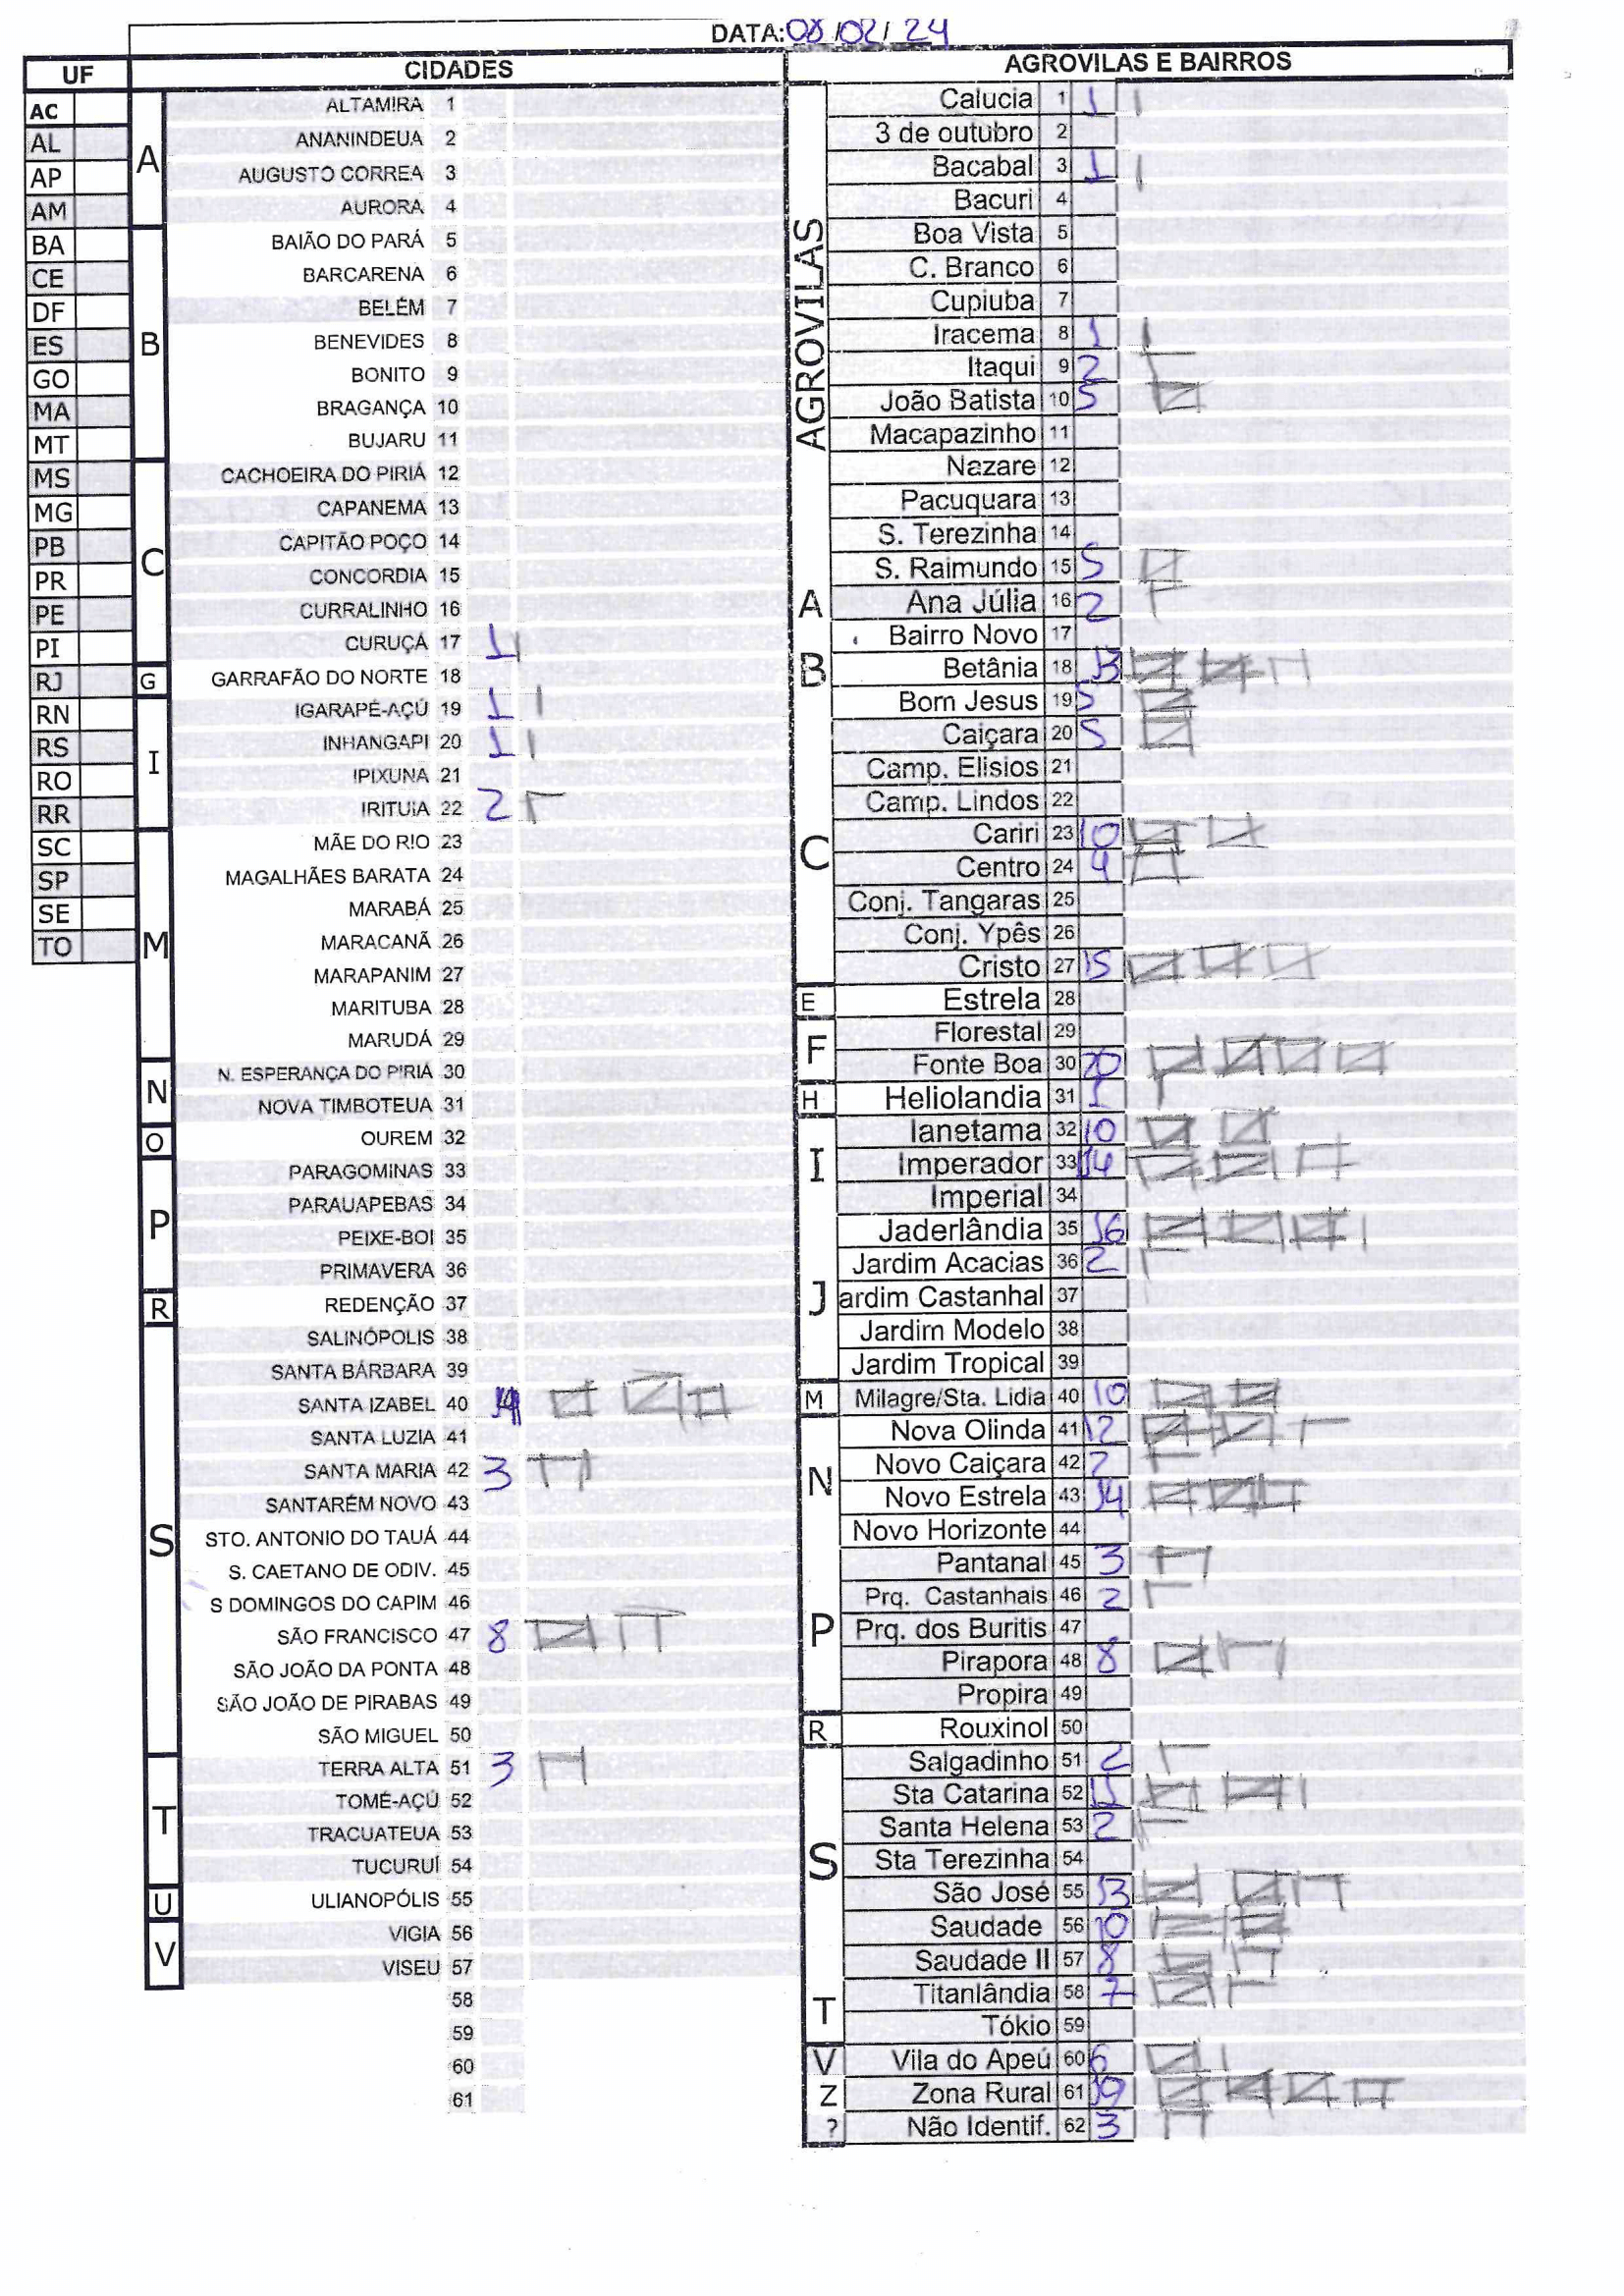 DATA: 08/02/24
UF
CIDADES
AGROVILAS E BAIRROS
AC
AL
AP
AM
BA
CE
DF
ES
GO
MA
MT
MS
MG
PB
PR
PE
PI
RJ
RN
RS
RO
RR
SC
SP
SE
TO
A
ALTAMIRA 1
ANANINDEUA 2
AUGUSTO CORREA 3
AURORA 4
B
BAIÃO DO PARÁ 5
BARCARENA 6
BELÉM 7
BENEVIDES 8
BONITO 9
BRAGANÇA 10
BUJARU 11
C
CACHOEIRA DO PIRIÁ 12
CAPANEMA 13
CAPITÃO POÇO 14
CONCORDIA 15
CURRALINHO 16
CURUÇÁ 17 1
G
GARRAFÃO DO NORTE 18
I
IGARAPÉ-AÇÚ 19 1
INHANGAPI 20 1
IPIXUNA 21
IRITUIA 22 2
M
MÃE DO RIO 23
MAGALHÃES BARATA 24
MARABÁ 25
MARACANÃ 26
MARAPANIM 27
MARITUBA 28
MARUDÁ 29
N
N. ESPERANÇA DO PIRIÁ 30
NOVA TIMBOTEUA 31
O
OUREM 32
P
PARAGOMINAS 33
PARAUAPEBAS 34
PEIXE-BOI 35
PRIMAVERA 36
R
REDENÇÃO 37
S
SALINÓPOLIS 38
SANTA BÁRBARA 39
SANTA IZABEL 40
SANTA LUZIA 41
SANTA MARIA 42 3
SANTARÉM NOVO 43
STO. ANTONIO DO TAUÁ 44
S. CAETANO DE ODIV. 45
S DOMINGOS DO CAPIM 46
SÃO FRANCISCO 47 8
SÃO JOÃO DA PONTA 48
SÃO JOÃO DE PIRABAS 49
SÃO MIGUEL 50
T
TERRA ALTA 51 3
TOMÉ-AÇÚ 52
TRACUATEUA 53
TUCURUÍ 54
U
ULIANOPÓLIS 55
V
VIGIA 56
VISEU 57
58
59
60
61
AGROVILAS
Calucia 1 1
3 de outubro 2
Bacabal 3 1
Bacuri 4
Boa Vista 5
C. Branco 6
Cupiuba 7
Iracema 8 1
Itaqui 9 2
João Batista 10 5
Macapazinho 11
Nazare 12
Pacuquara 13
S. Terezinha 14
S. Raimundo 15 5
A
Ana Júlia 16 2
Bairro Novo 17
B
Betânia 18 13
Bom Jesus 19 5
Caiçara 20 5
Camp. Elisios 21
Camp. Lindos 22
C
Cariri 23 10
Centro 24 4
Conj. Tangaras 25
Conj. Ypês 26
Cristo 27 15
E
Estrela 28
F
Florestal 29
Fonte Boa 30 20
H
Heliolandia 31 1
I
Ianetama 32 10
Imperador 33 14
Imperial 34
J
Jaderlândia 35 16
Jardim Acacias 36 2
ardim Castanhal 37
Jardim Modelo 38
Jardim Tropical 39
M
Milagre/Sta. Lidia 40 10
N
Nova Olinda 41 12
Novo Caiçara 42 2
Novo Estrela 43 14
Novo Horizonte 44
P
Pantanal 45 3
Prq. Castanhais 46 2
Prq. dos Buritis 47
Pirapora 48 8
Propira 49
R
Rouxinol 50
S
Salgadinho 51 2
Sta Catarina 52 11
Santa Helena 53 2
Sta Terezinha 54
São José 55 13
Saudade 56 10
Saudade II 57 8
T
Titanlândia 58 7
Tókio 59
V
Vila do Apeú 60 6
Z
Zona Rural 61 19
?
Não Identif. 62 3